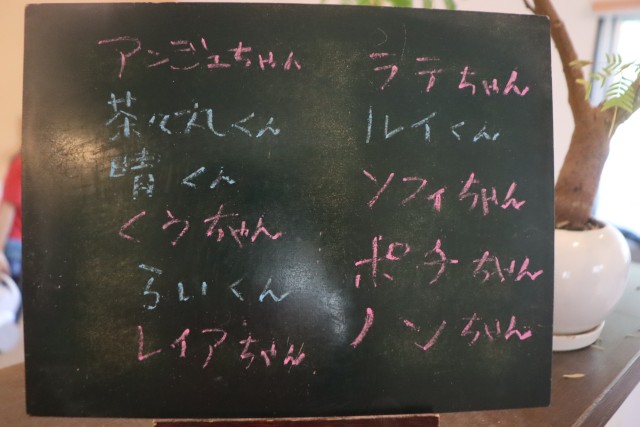 アンジュちゃん
茶々丸くん
晴くん
くうちゃん
るいくん
レイアちゃん
ラテちゃん
ルイくん
ソフィちゃん
ポチちゃん
ノンちゃん